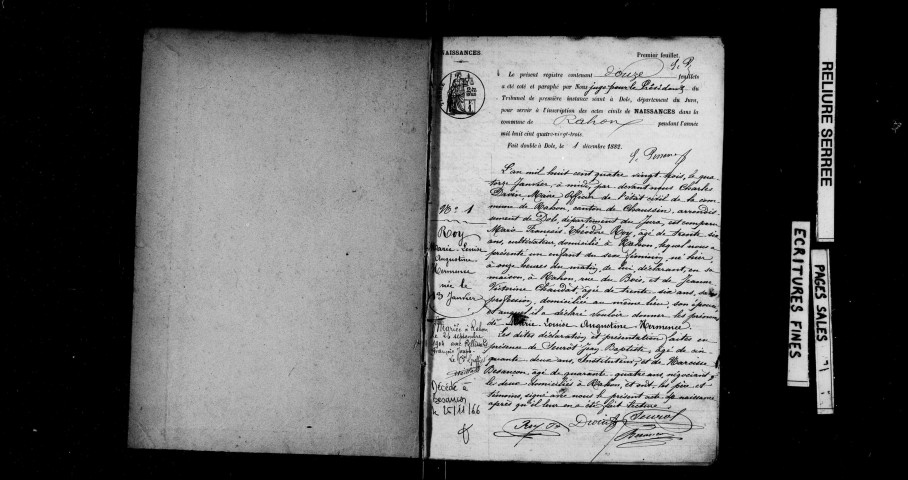 NAISSANCES
Premier feuillet.
Le présent registre contenant douze feuillets
a été coté et paraphé par Nous juge pour le Président du
Tribunal de première instance séant à Dole, département du Jura,
pour servir à l'inscription des actes civils de NAISSANCES dans la
commune de Rahon pendant l'année
mil huit cent quatre-vingt-trois.
Fait double à Dole, le 1 décembre 1882.
L'an mil huit cent quatre vingt trois, le qua
torze Janvier, à midi, par devant nous Charles
Maire Officier de l'état civil de la com
mune de Rahon, canton de Chaussin, arrondis
sement de Dole, département du Jura, est comparu
Marie François Théodore Roy, âgé de trente six
ans, cultivateur, domicilié à Rahon, lequel nous a
présenté un enfant du sexe féminin, né hier,
à onze heures du matin, de lui, déclarant, en sa
maison, à Rahon, rue du Bois, et de Jeanne
Victorine Chaudat, âgé de trente six ans, sans
profession, domiciliée au même lieu, son épouse,
et auquel il a déclaré vouloir donner les prénoms
de Marie Louise Augustine Hermence.
Les dites déclaration et présentation faites en
présence de Jean Baptiste, âgé de cin
quante deux ans, Instituteur, et de Narcisse
Besançon, âgé de quarante quatre ans, négociant
le deux domiciliés à Rahon, et ont, les père et
témoins, signé avec nous le présent acte de naissance
après qu'il leur en a été fait lecture.
N° 1
Roy
Marie Louise
Augustine
Hermence
née le
13 Janvier
Mariée à Rahon
le 24 septembre
1904 avec
François Joseph
Le Greffier
Décédée à
Besançon
le 25/11/66
Roy
Besançon
RELIURE SERREE
ECRITURES FINES
PAGES SALES